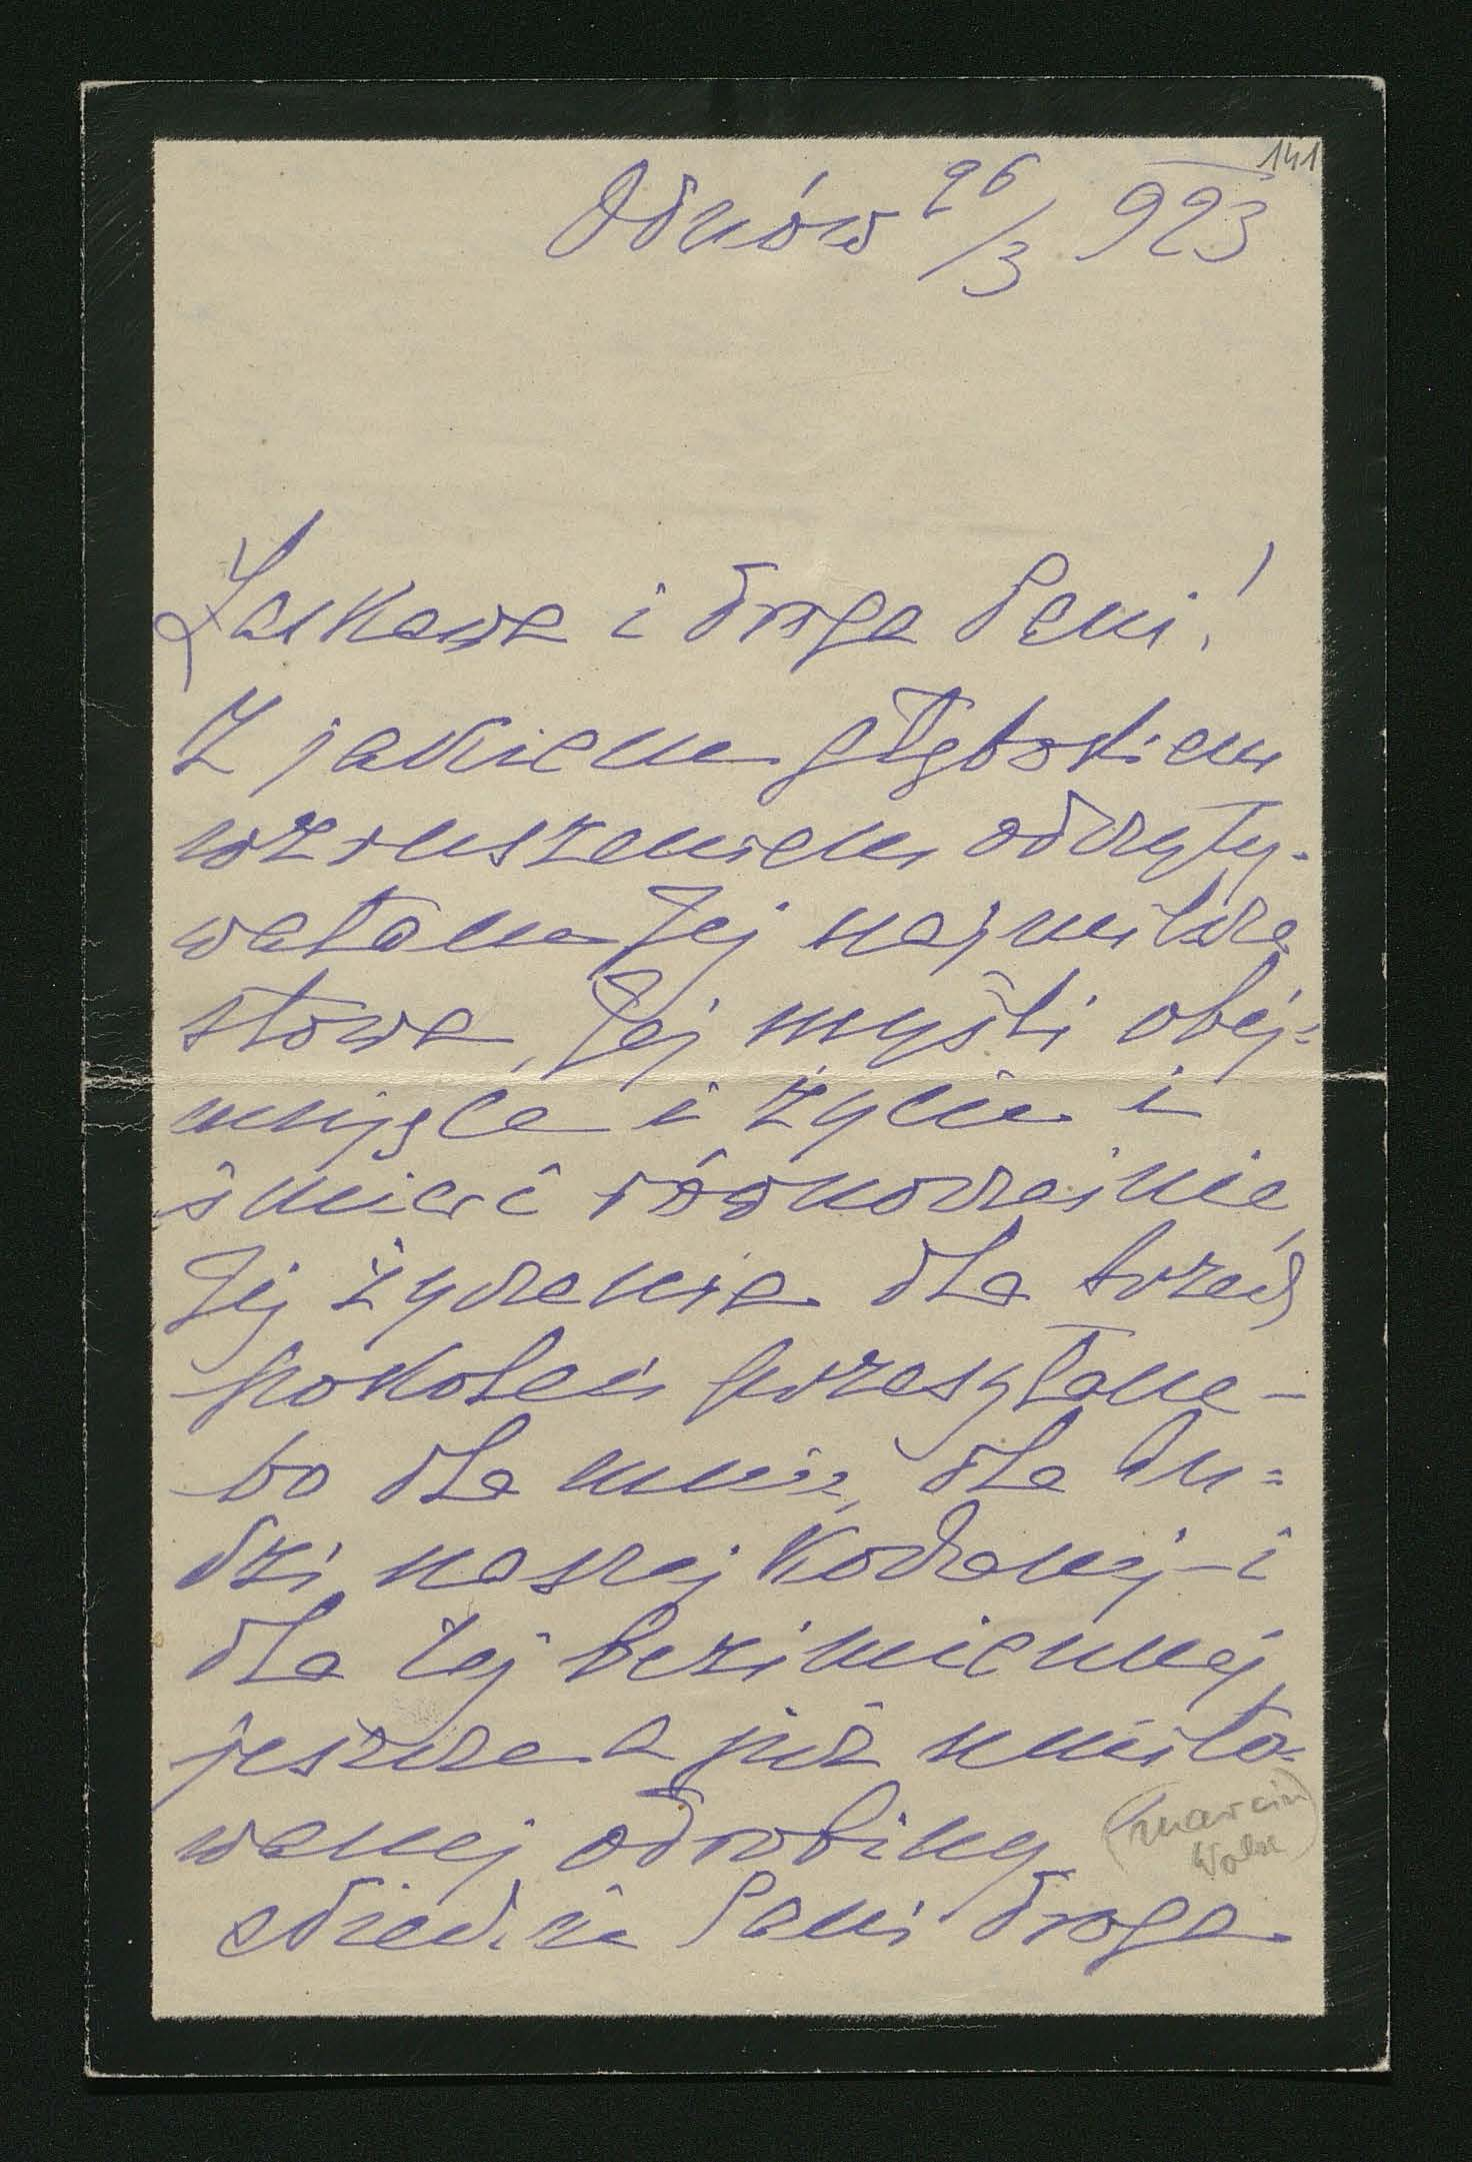 141
Odnów 26/3 923
Łaskawa i droga Pani!
Z jakiem głębokiem
wzruszeniem odczyty-
wałam Jej najmilsze
słowa, Jej myśli obej=
mujące i życie i
śmierć równocześnie,
Jej życzenia dla trzech
pokoleń przesyłane –
bo dla mnie, dla Lu=
dzi naszej Kochanej – i
dla tej bezimiennej
jeszcze a już umiło=
wanej odrobiny
(Marcin
Pani droga